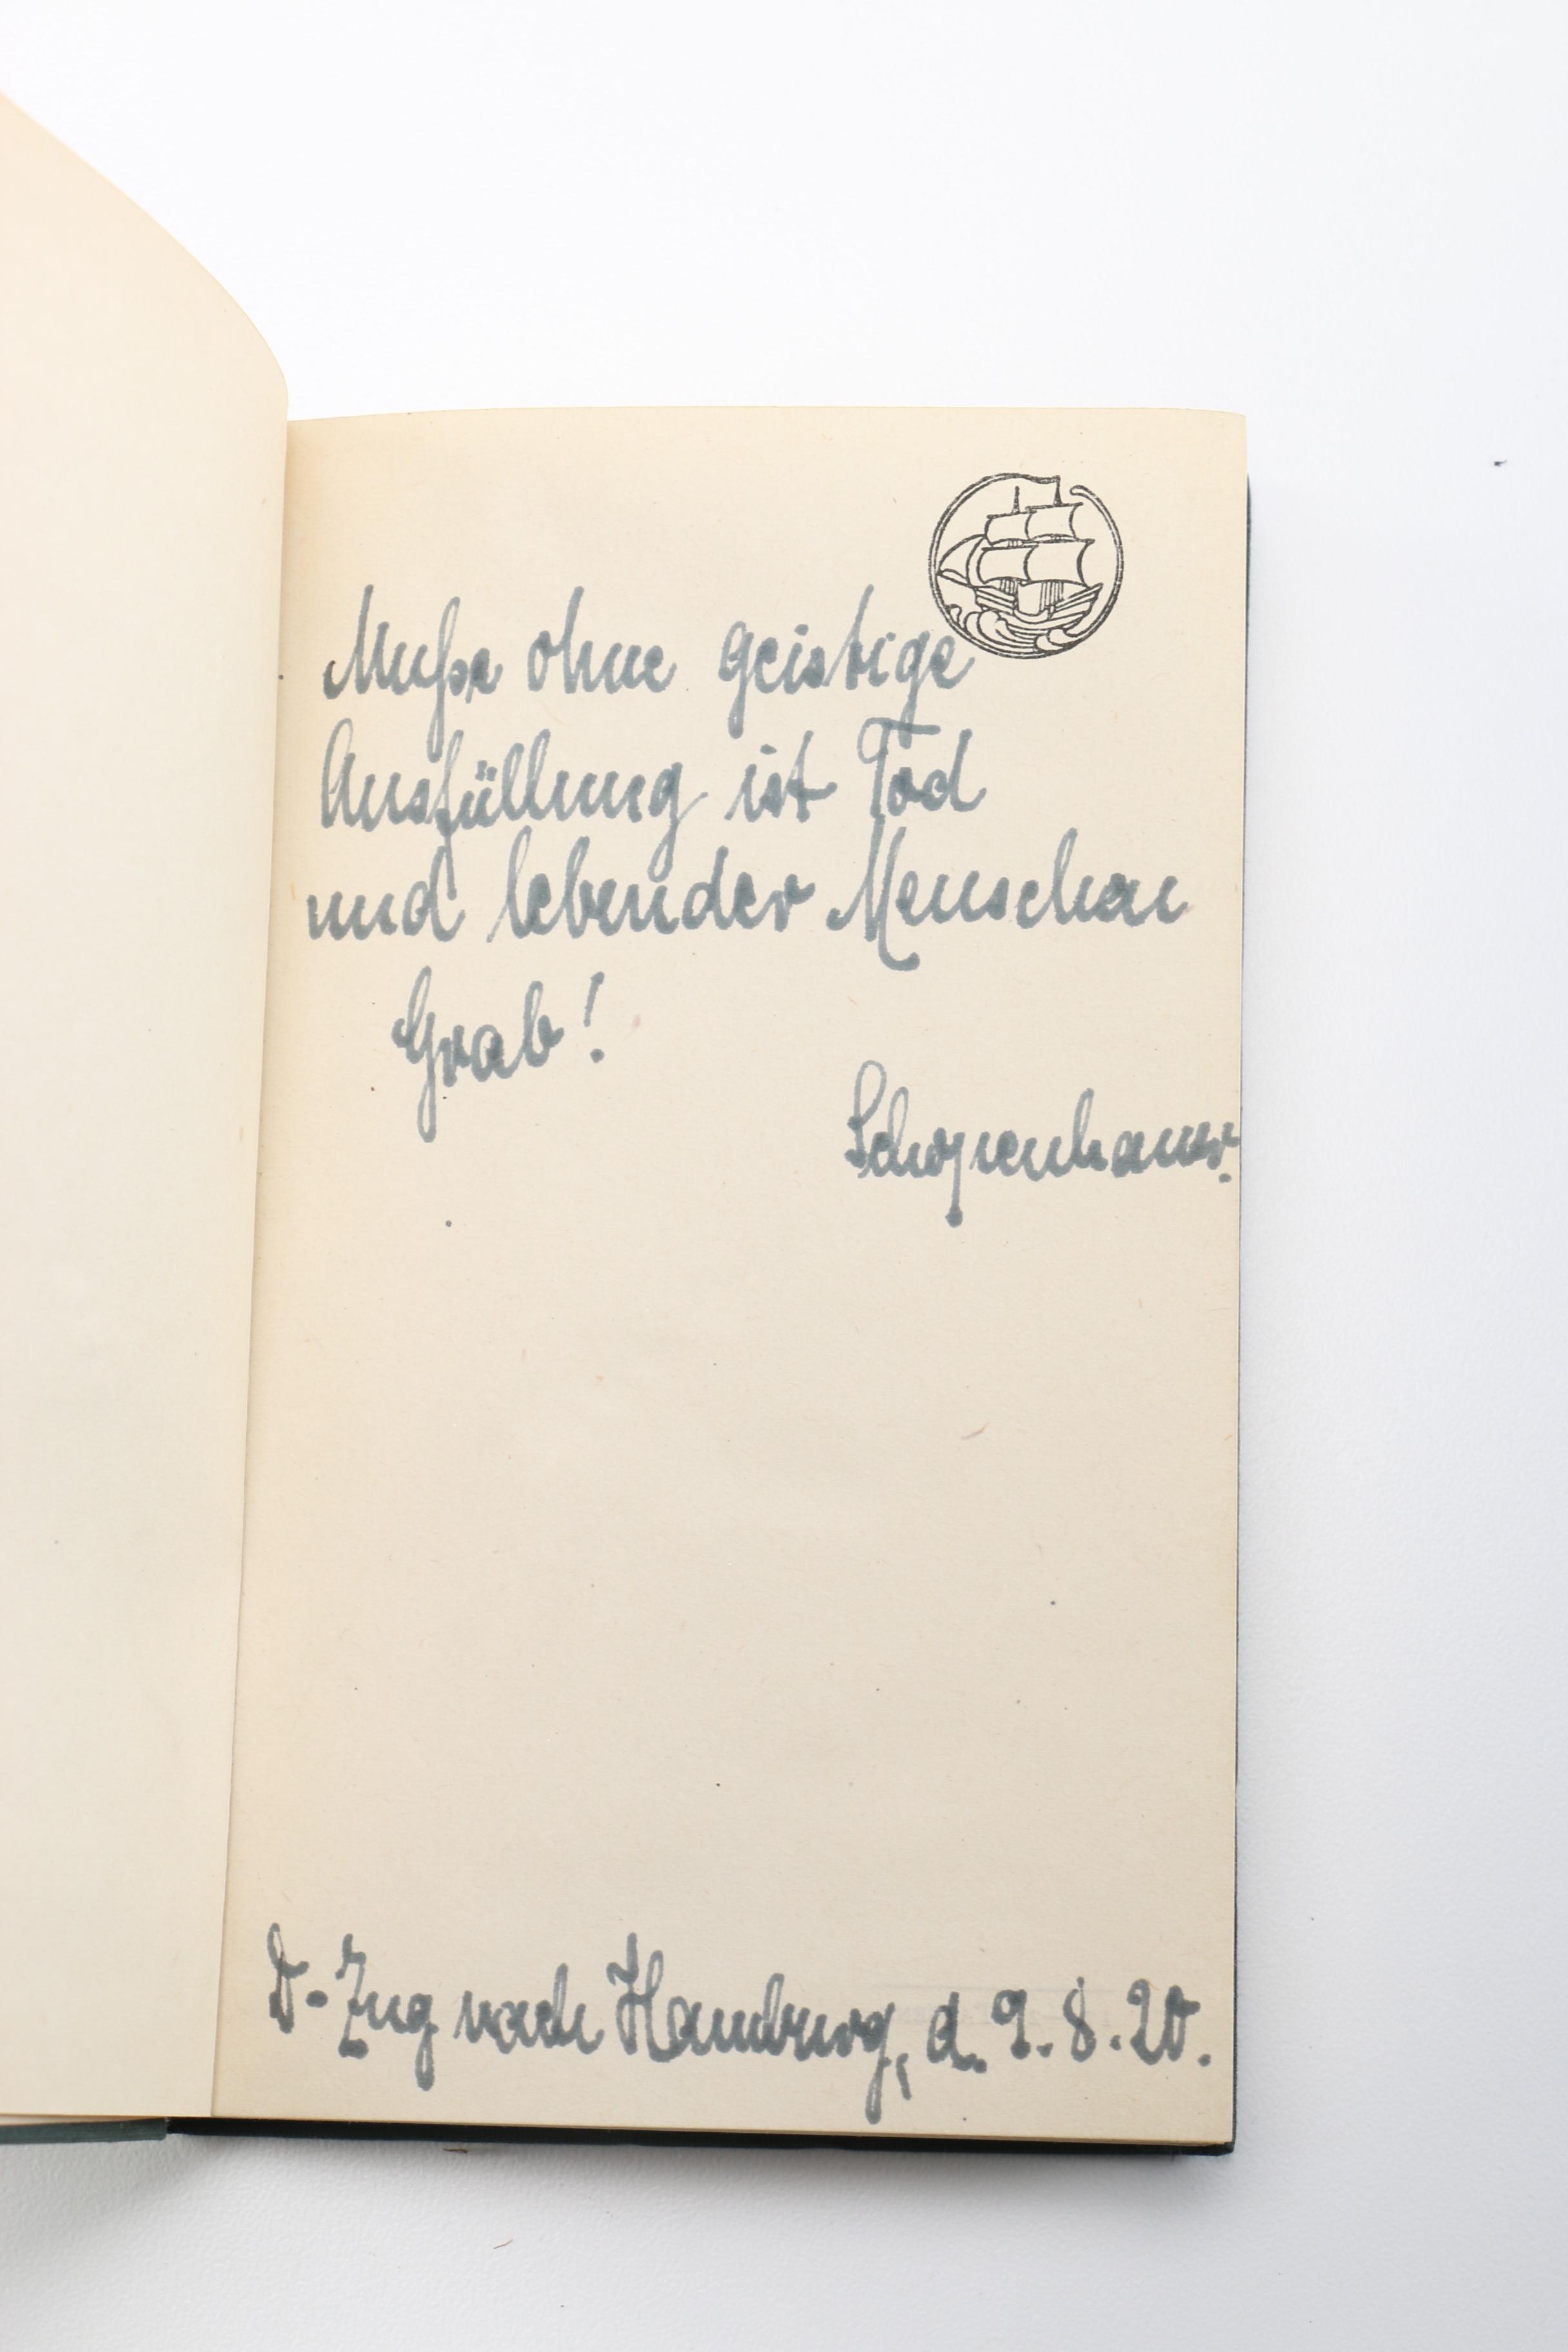 Muße ohne geistige
Ausfüllung ist Tod
und lebender Menschen
Grab!
Schopenhauer.
D-Zug nach Hamburg, d. 9.8.20.